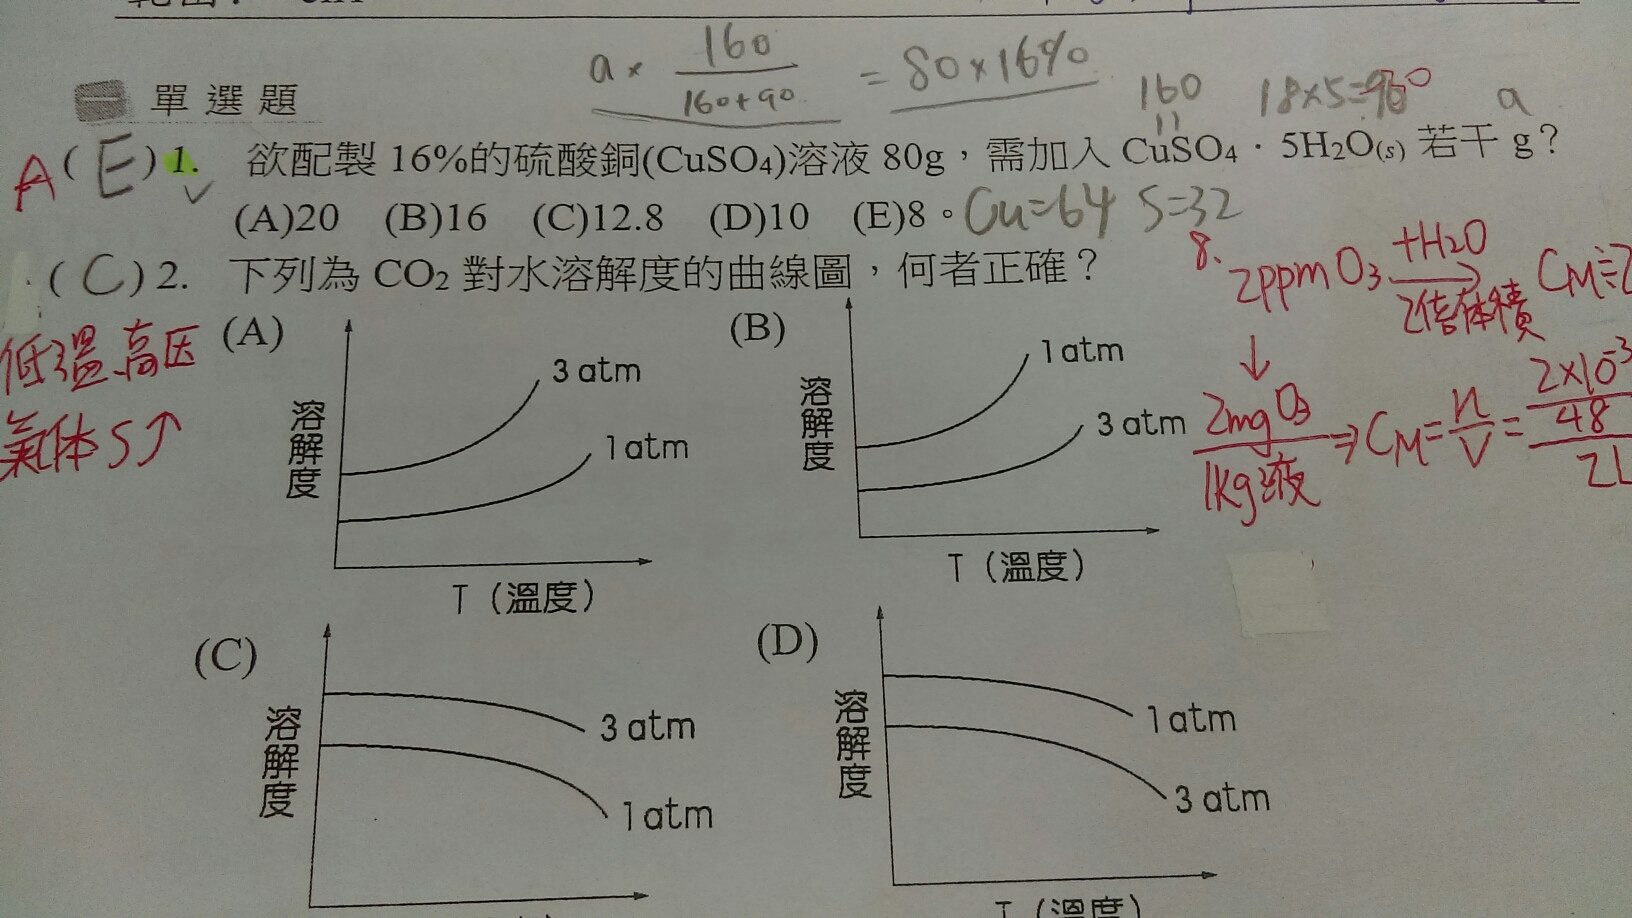 a × 160 / 160+90 = 80×16%
160 18×5=90 a
一 單選題
A ( E ) 1. 欲配製 16%的硫酸銅(CuSO₄)溶液 80g，需加入 CuSO₄．5H₂O(s) 若干 g？
(A)20 (B)16 (C)12.8 (D)10 (E)8。 Cu=64 S=32
( C ) 2. 下列為 CO₂ 對水溶解度的曲線圖，何者正確？
8. 2ppm O₃ +H₂O → 2倍体積
↓
2mg O₃ / 1kg液 ⇒ CM = n/V = 2×10⁻³ / 48 / 2L
低溫高压
氣体S↑
(A)
溶解度
3 atm
1 atm
T（溫度）
(B)
溶解度
1 atm
3 atm
T（溫度）
(C)
溶解度
3 atm
1 atm
(D)
溶解度
1 atm
3 atm
T（溫度）